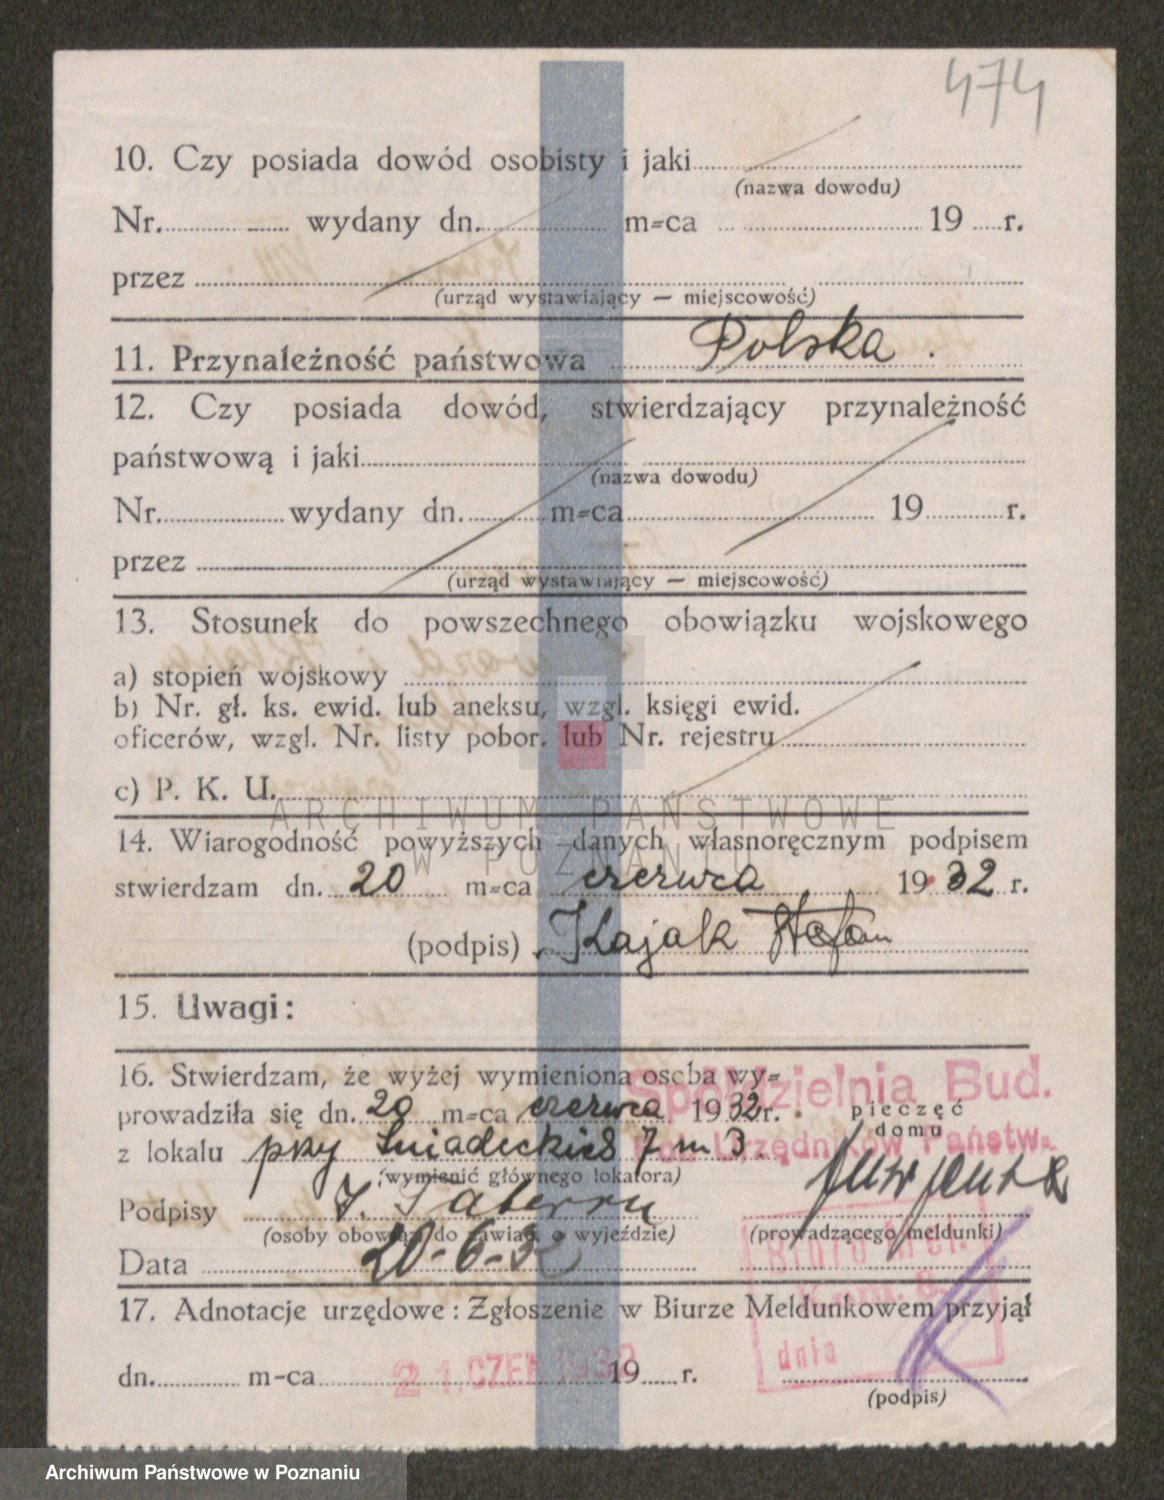 474
10. Czy posiada dowód osobisty i jaki
(nazwa dowodu)
Nr. wydany dn. m=ca 19 r.
przez
(urząd wystawiający — miejscowość)
11. Przynależność państwowa Polska.
12. Czy posiada dowód, stwierdzający przynależność
państwową i jaki
(nazwa dowodu)
Nr. wydany dn. m=ca 19 r.
przez
(urząd wystawiający — miejscowość)
13. Stosunek do powszechnego obowiązku wojskowego
a) stopień wojskowy
b) Nr. gł. ks. ewid. lub aneksu, wzgl. księgi ewid.
oficerów, wzgl. Nr. listy pobor. lub Nr. rejestru
c) P. K. U.
ARCHIWUM PAŃSTWOWE
W POZNANIU
14. Wiarogodność powyższych danych własnoręcznym podpisem
stwierdzam dn. 20 m=ca czerwca 1932 r.
(podpis) Kajak Stefan
15. Uwagi:
16. Stwierdzam, że wyżej wymieniona osoba wy=
prowadziła się dn. 20 m=ca czerwca 1932 r.
Spółdzielnia Bud.
pieczęć
domu
Urzędników Państw.
z lokalu przy Śniadeckich 7 m 3.
(wymienić głównego lokatora)
Podpisy J.
(osoby obowiąz. do zawiad. o wyjeździe)
(prowadzącego meldunki)
Data 20-6-32
Biuro Mel.
17. Adnotacje urzędowe: Zgłoszenie w Biurze Meldunkowem przyjął
dnia
dn. m-ca 21. CZER 1932 19 r.
(podpis)
Archiwum Państwowe w Poznaniu